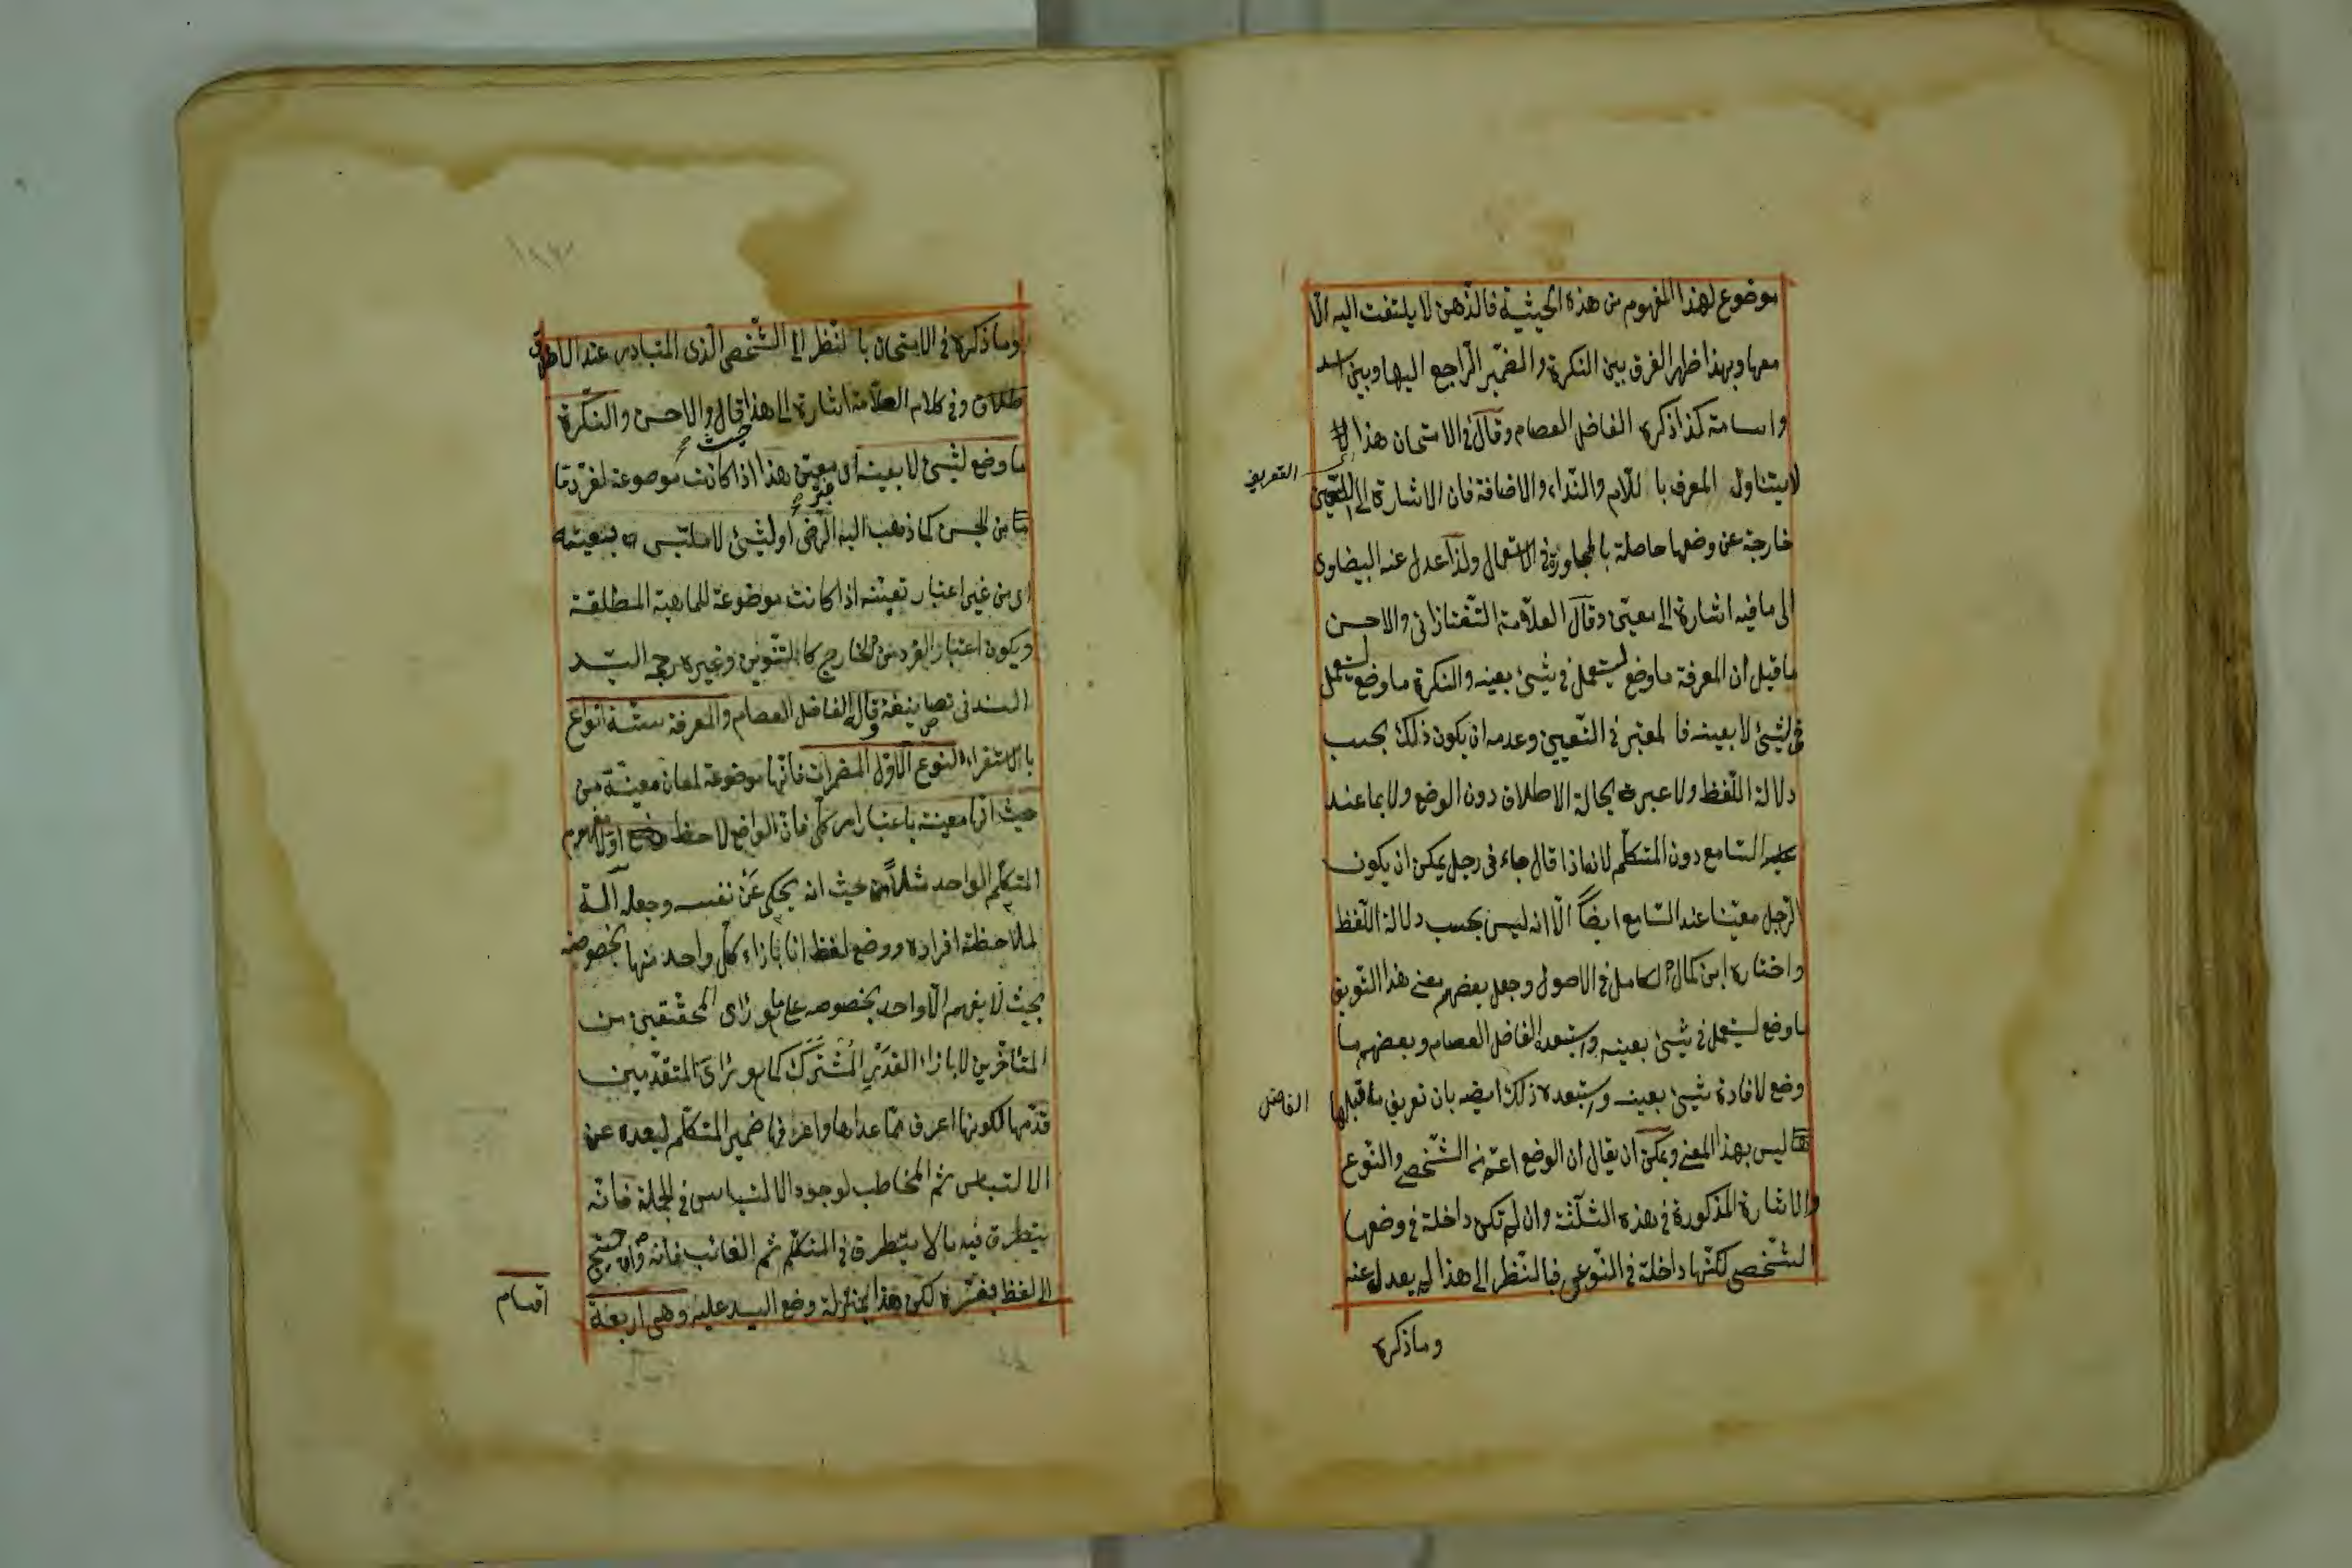 موضوع لهذا المفهوم من هذه الحيثية فالذهن لا يلتفت اليه الّا
معها وبهذا ظهر الفرق بين النكرة والضمير الراجع اليها وبين اسد
واسامة كذا ذكره الفاضل العصام وقال فى الامتحان هذا
لا يتناول المعرف باللام والنداء والاضافة فان الاشارة الى التعيين
التعريف
خارجة عن وضعها حاصلة بالمجاورة فى الاستعمال ولذا عدل عنه البيضاوى
الى ما فيه اشارة الى معين وقال العلامة التفتازانى والاحسن
ما قيل ان المعرفة ما وضع ليستعمل فى شيئ بعينه والنكرة ما وضع ليستعمل
فى شيئ لا بعينه فالمعتبر فى التعيين وعدمه ان يكون ذلك بحسب
دلالة اللفظ ولا عبرة بحالة الاطلاق دون الوضع ولا بما عند
السامع دون المتكلم لانه اذا قال جاءنى رجل يمكن ان يكون
الرجل معيّنا عند السامع ايضاً الّا انه ليس بحسب دلالة اللفظ
واختاره ابن كمال الكامل فى الاصول وجعل بعضهم معنى هذا التعريف
ما وضع ليستعمل فى شيئ بعينه واستبعده الفاضل العصام وبعضهم ما
وضع لافادة شيئ بعينه واستبعده ذلك ايضه بان تعريف ما قبلها
الفاضل
ليس بهذا المعنى ويمكن ان يقال ان الوضع اعم من الشخصى والنوع
والاشارة المذكورة فى هذه الثلثة وان لم تكن داخلة فى وضعها
الشخصى لكنها داخلة فى النوعى فبالنظر الى هذا لم يعدل عنه
وما ذكره
وما ذكره فى الامتحان بالنظر الى الشخصى الذى المتبادر عند الا
طلاق وفى كلام العلامة اشارة الى هذا قال والاحسن والنكرة
ما وضع لشيئ لا بعينه اى معين هذا اذا كانت موضوعة لفرد ما
حيث
غير
من الجنس كما ذهب اليه الرضى او لشيئ لا ملتبس بتعيينه
اى من غير اعتبار تعينه اذا كانت موضوعة للماهية المطلقة
ويكون اعتبار الفرد من الخارج كالتنوين وغيره رجحه السيد
السند فى تصانيفه وقال الفاضل العصام والمعرفة ستة انواع
بالاستقراء النوع الاول المضمرات فانها موضوعة لمعان معينة من
حيث انها معينة باعتبار امر كلى فان الواضع لاحظ اولا مفهوم
المتكلم الواحد مثلاً من حيث انه يحكى عن نفسه وجعله آلة
لملاحظة افراده ووضع لفظ انا بازاء كل واحد منها بخصوصه
بحيث لا يفهم الّا واحد بخصوصه على ما هو رأى المحققين من
المتأخرين لا بازاء القدر المشترك كما هو رأى المتقدمين
قدمها لكونها اعرف مما عداها واعرفها ضمير المتكلم لبعده عن
الالتباس ثم المخاطب لوجود الالتباس فى الجملة فانه
يتطرق فيه ما لا يتطرق فى المتكلم ثم الغائب فانه وان احتيج
الى لفظ يفسره لكن هذا بمنزلة وضع اليد عليه وهى اربعة
اقسام